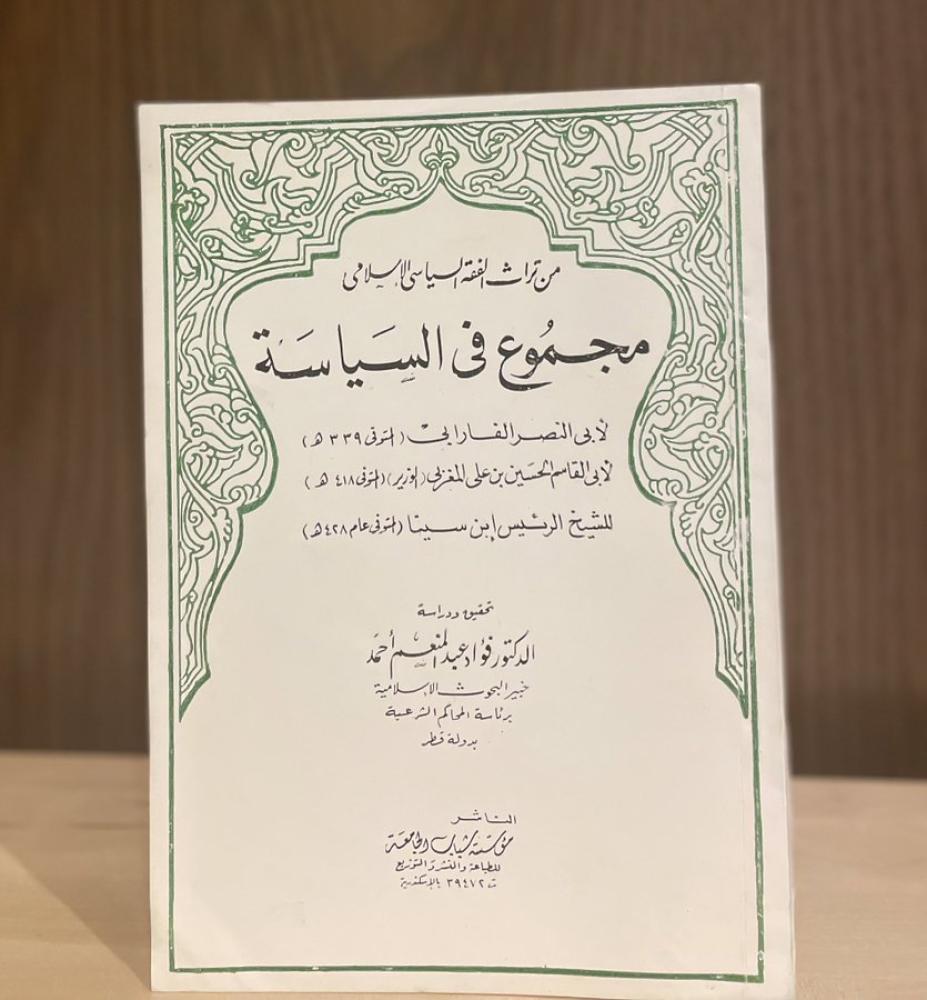 من تراث الفقه السياسى الإسلامى
مجمُوع فى السِيَاسَة
لأبى النصر الفارابى (المتوفى ٣٣٩ هـ)
لأبى القاسم الحسين بن على المغربى (الوزير) (المتوفى ٤١٨ هـ)
للشيخ الرئيس إبن سينا (المتوفى عام ٤٢٨ هـ)
تحقيق ودراسة
الدكتور فؤاد عبد المنعم أحمد
خبير البحوث الإسلامية
برئاسة المحاكم الشرعية
بدولة قطر
الناشر
مؤسسة شباب الجامعة
للطباعة والنشر والتوزيع
ت ٣٩٤٧٢ بالإسكندرية